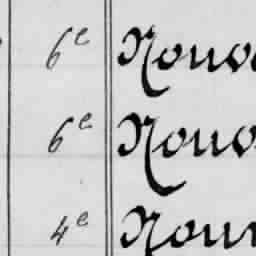 6e Nouv
6e Nouv
4e Nour